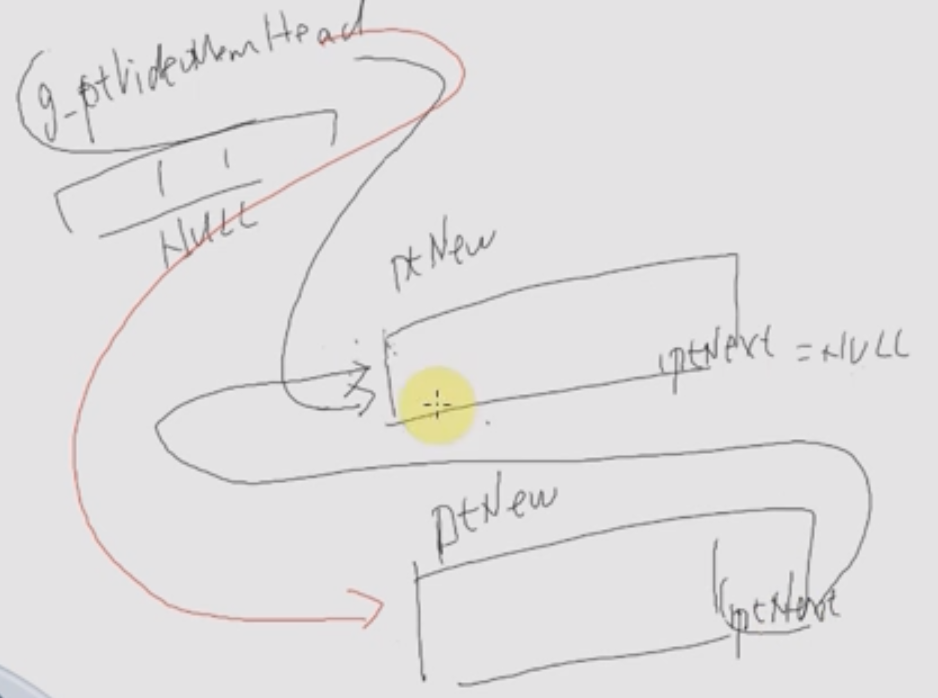 g_ptVideoMemHead
NULL
ptNew
ptNext = NULL
ptNew
ptNext